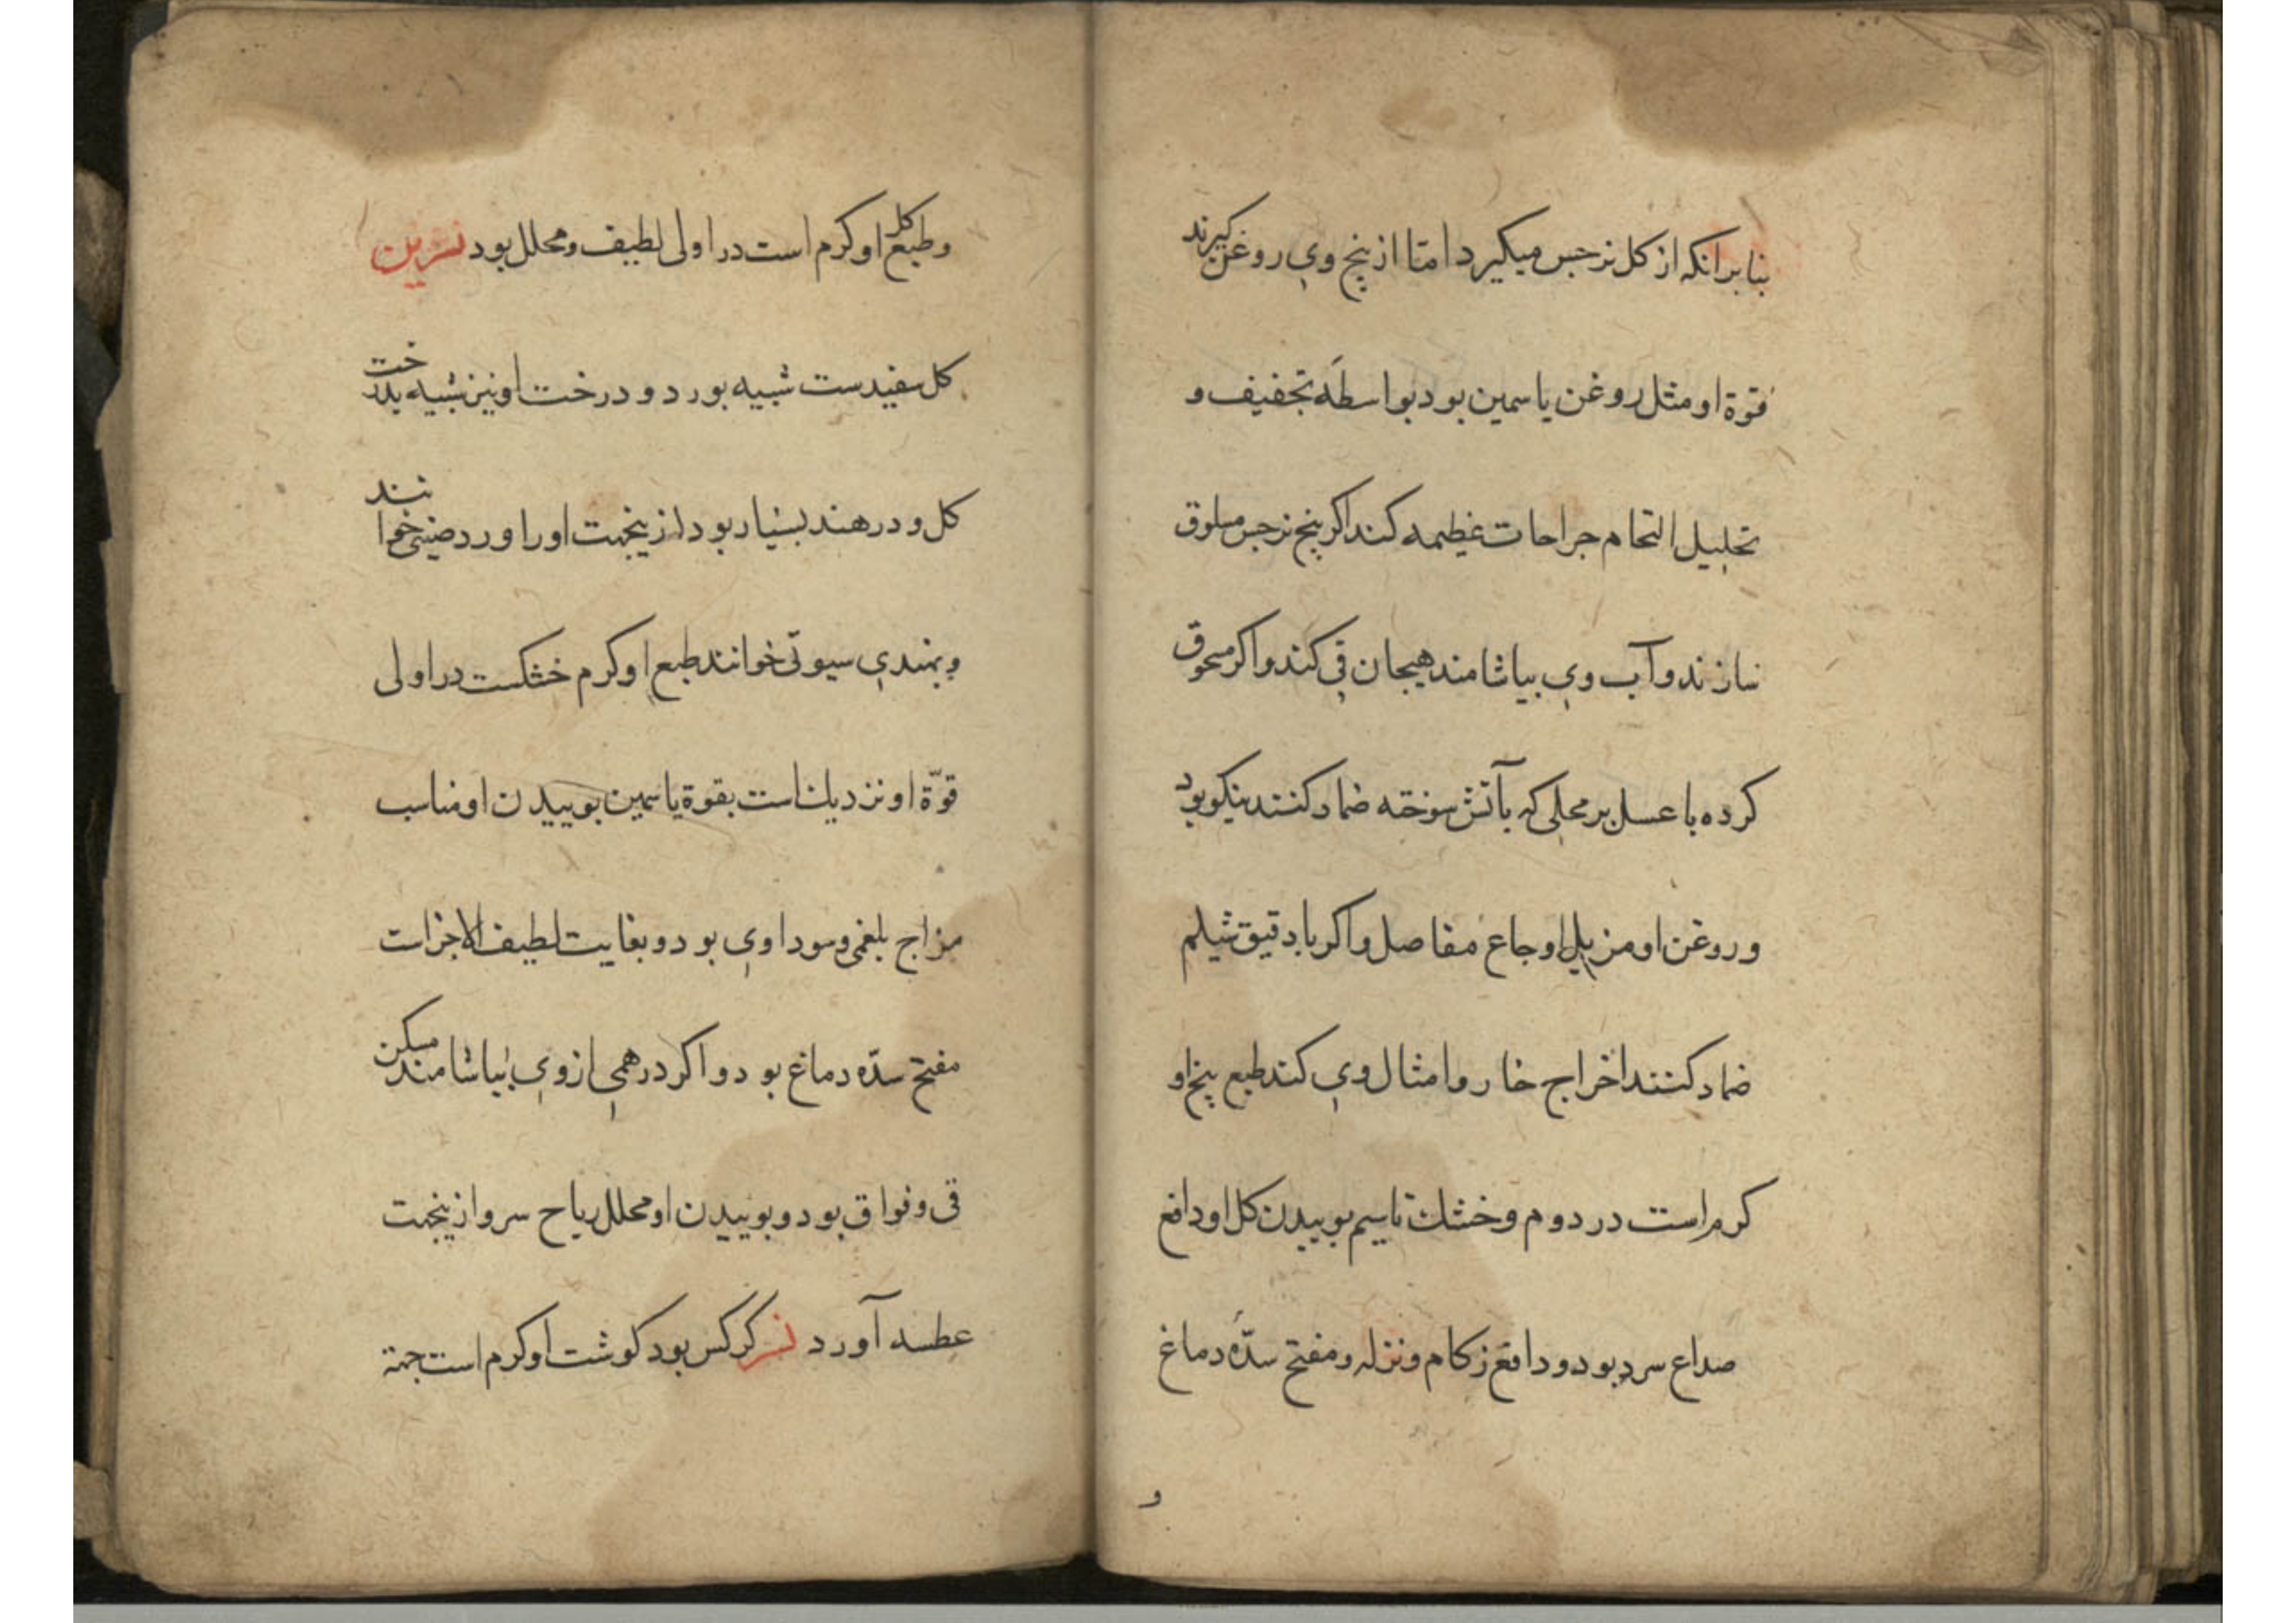 بنابرانکه از کل نرجس میکیرد امتا از بیخ وی روغن کیرند
قوة او مثل روغن یاسمین بود بواسطه تجفیف و
تحلیل التحام جراحات عظیمه کند اکر بیخ نرجس مسلوق
سازند و آب وی بیاشامند هیجان قی کند و اکر مسحوق
کرده با عسل بر محلی که بآتش سوخته ضماد کنند نیکو بود
و روغن او مزیل اوجاع مفاصل و اکر با دقیق شیلم
ضماد کنند اخراج خار و امثال وی کند طبع بیخ او
کرم است در دوم و خشك تا سیم بوییدن کل او دافع
صداع سرد بود و دافع زکام و نزله و مفتح سدّه دماغ
و
و طبع کل او کرم است در اولی لطیف و محلل بود نسرین
کل سفیدست شبیه بورد و درخت او نیز شبیه بدرخت
کل و در هند بسیار بود ازینجهت او را ورد صینی خوانند
و بهندی سیوتی خوانند طبع او کرم خشکست در اولی
قوّة او نزدیك است بقوة یاسمین بوییدن او مناسب
مزاج بلغمی و سوداوی بود و بغایت لطیف الاجزاست
مفتح سدّه دماغ بود و اکر درهمی از وی بیاشامند مسکن
قی و فواق بود و بوییدن او محلل ریاح سر و ازینجهت
عطسه آورد نسر کرکس بود کوشت او کرم است جهة